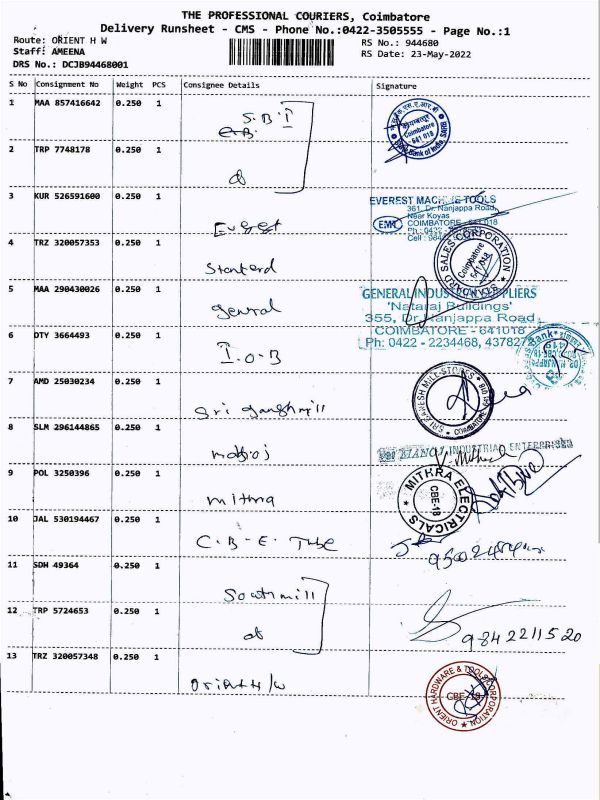 THE PROFESSIONAL COURIERS, Coimbatore
Delivery Runsheet - CMS - Phone No.:0422-3505555 - Page No.:1
Route: ORIENT H W
Staff: AMEENA
DRS No.: DCJB94468001
RS No.: 944680
RS Date: 23-May-2022
S No Consignment No Weight PCS Consignee Details Signature
1 MAA 857416642 0.250 1 S.B.I
Coimbatore
641 018
State Bank of India, SARB
2 TRP 7748178 0.250 1 do
3 KUR 526591600 0.250 1 Everest
EVEREST MACHINE TOOLS
361, Dr. Nanjappa Road,
Near Koyas
COIMBATORE - 641 018
EMT
4 TRZ 320057353 0.250 1 Standard
STANDARD SALES CORPORATION
Coimbatore
641 018
5 MAA 290430026 0.250 1 General
GENERAL INDUSTRIAL SUPPLIERS
'Nataraj Buildings'
355, Dr. Nanjappa Road
COIMBATORE - 641018
Ph: 0422 - 2234468, 437827
6 DTY 3664493 0.250 1 I.O.B
7 AMD 25030234 0.250 1 Sri Ganesh mill
SRI GANESH MILL STORES
COIMBATORE
8 SLM 296144865 0.250 1 manoj
SRI MANOJ INDUSTRIAL ENTERPRISES
9 POL 3250396 0.250 1 mithra
MITHRA ELECTRICALS
CBE-18
10 JAL 530194467 0.250 1 C.B.E. Tube
11 SDH 49364 0.250 1 South mill
12 TRP 5724653 0.250 1 do
9842211520
13 TRZ 320057348 0.250 1 Orient H/W
ORIENT HARDWARE & TOOLS CORPORATION
CBE-18